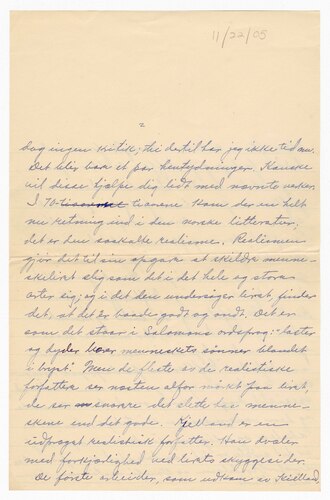 11/22/05
2
bog ingen kritik; thi dertil har jeg ikke tid nu.
Det blir bare et par hentydninger. Kanske
vil disse hjælpe dig lidt med nævnte verker.
I 70- tiaarene kom der en helt
ny retning ind i den norske litteratur;
det er den saakalte realisme. Realismen
gjør det til sin opgave at skildre menne-
skelivet slig som det i det hele og store
arter sig; og i det den undersøger livet, finder
det, at det er baade godt og ondt. Det er
som det staar i Salomons ordsprog: laster
og dyder bor menneskets sønner blandet
i bryst. Men de fleste av de realistiske
forfattere ser næsten altfor mørkt paa livet,
de ser snarere det slette hos menne-
skene end det gode. Kjelland er en
udpræget realistisk forfatter. Han dvæler
med forkjærlighed ved livets skyggesider.
De første arbeider, som udkom av Kielland,